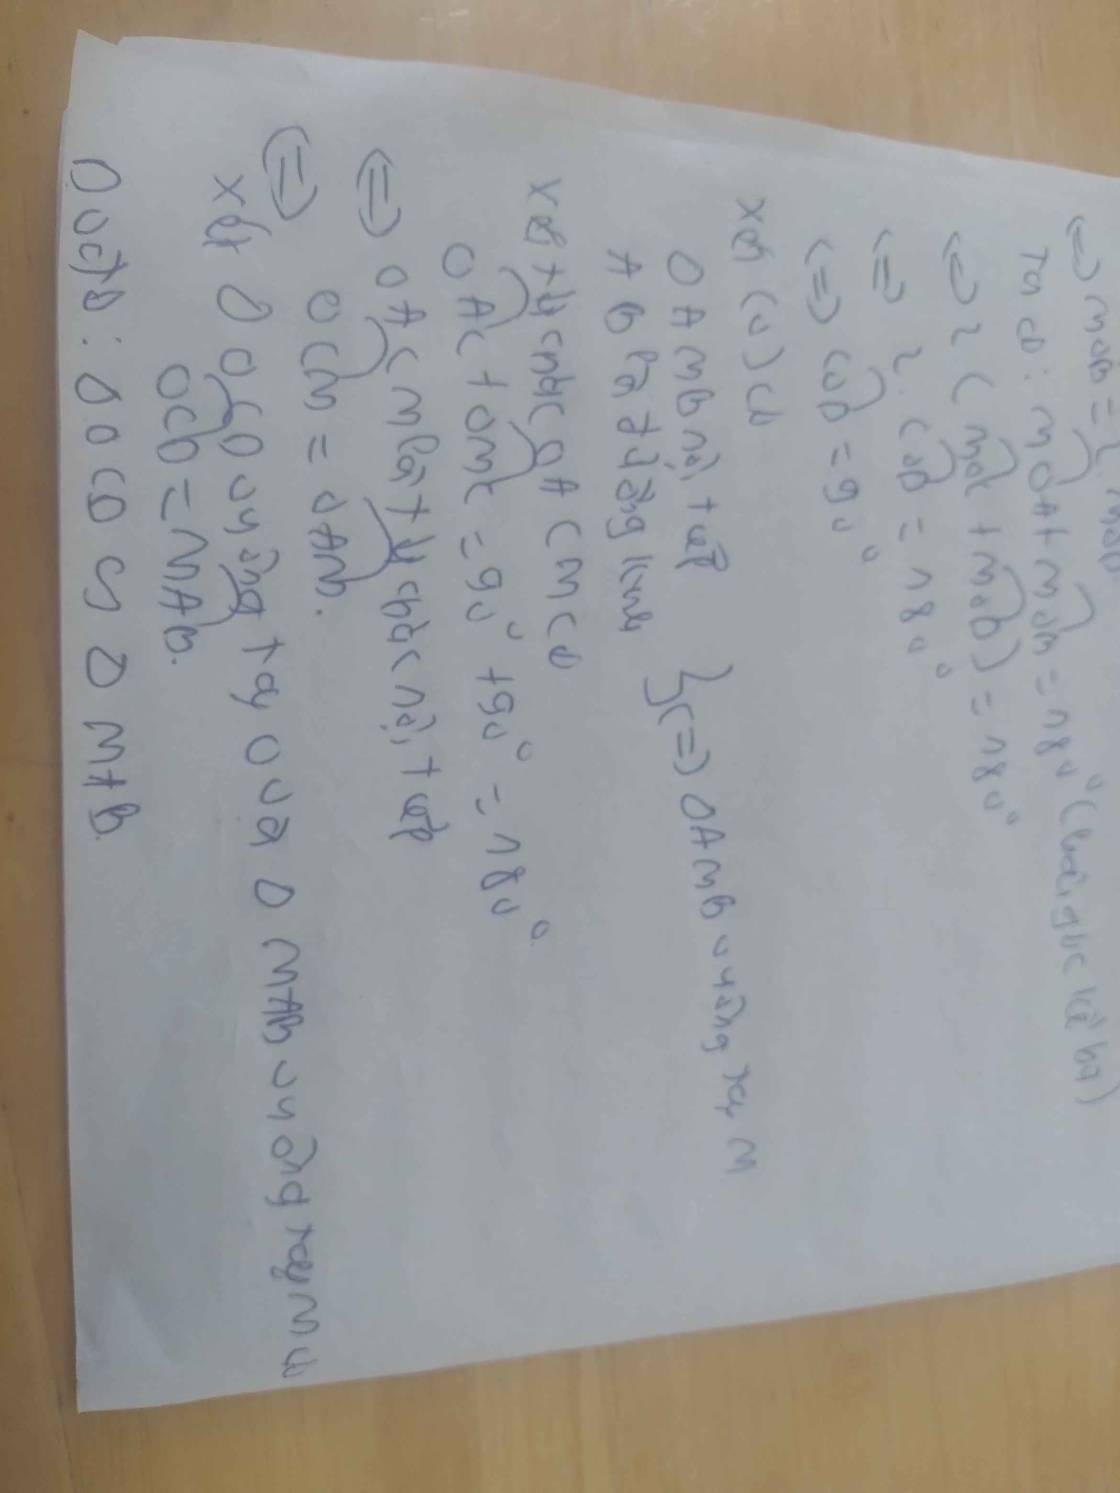 (=) MOB = 2 MOD
Ta có: MOA + MOB = 180° (hai góc kề bù)
(=) 2 (MOC + MOD) = 180°
(=) 2. COD = 180°
(=) COD = 90°
Xét (O) có
Δ AMB nội tiếp
AB là đường kính } (=) Δ AMB vuông tại M
Xét tứ giác OACM có
OAC + OMC = 90° + 90° = 180°
(=) OACM là tứ giác nội tiếp
(=) OCM = OAM.
Xét Δ OCD vuông tại O và Δ MAB vuông tại M có
OCD = MAB.
Do đó: Δ OCD ∽ Δ MAB